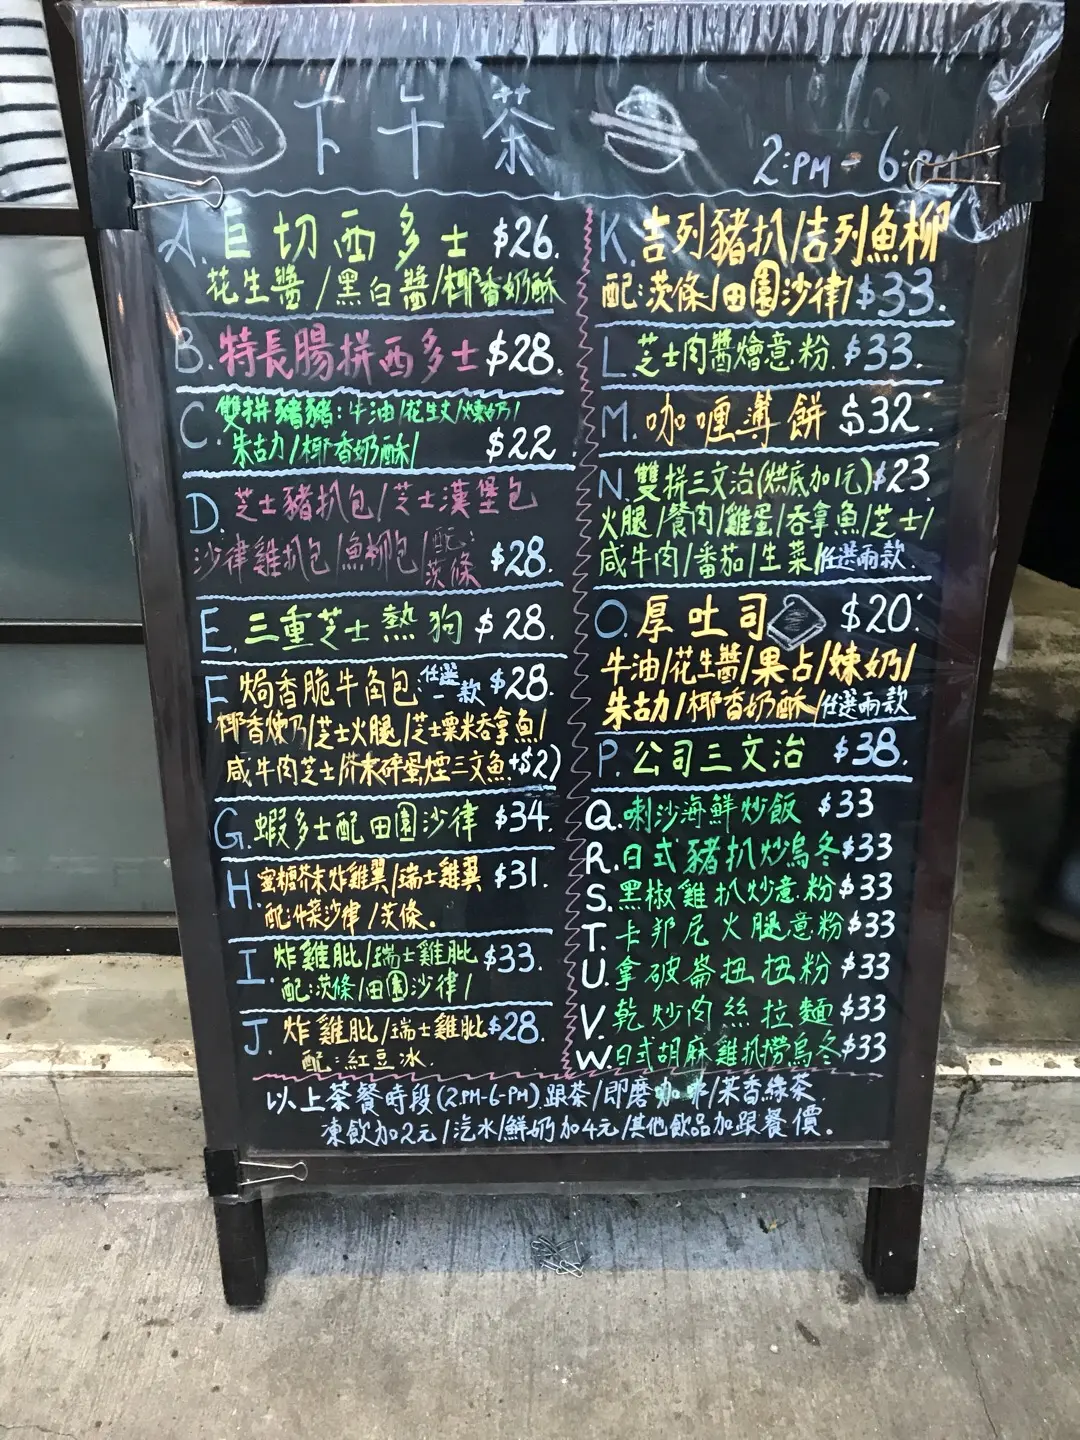 下午茶
2:PM - 6:PM
A. 巨切西多士 $26.
花生醬/黑白醬/椰香奶酥
B. 特長腸拼西多士 $28.
C. 雙拼豬豬:牛油/花生文/煉奶/
朱古力/椰香奶酥/ $22
D. 芝士豬扒包/芝士漢堡包
沙律雞扒包/魚柳包/配:茨條 $28.
E. 三重芝士熱狗 $28.
F 焗香脆牛角包 任選一款 $28
椰香煉乃/芝士火腿/芝士粟米吞拿魚/
咸牛肉芝士/芥末碎蛋煙三文魚+$2)
G. 蝦多士配田園沙律 $34.
H. 蜜糖芥末炸雞翼/瑞士雞翼 $31.
配:什菜沙律/茨條。
I. 炸雞肶/瑞士雞肶 $33.
配:茨條/田園沙律/
J. 炸雞肶/瑞士雞肶 $28.
配:紅豆冰.
K. 吉列豬扒/吉列魚柳
配:茨條/田園沙律/ $33.
L. 芝士肉醬燴意粉. $33.
M. 咖喱薄餅 $32.
N. 雙拼三文治(烘底加1元) $23
火腿/餐肉/雞蛋/吞拿魚/芝士/
咸牛肉/番茄/生菜/任選兩款.
O. 厚吐司 $20.
牛油/花生醬/果占/煉奶/
朱古力/椰香奶酥/任選兩款
P. 公司三文治 $38.
Q. 喇沙海鮮炒飯 $33
R. 日式豬扒炒烏冬 $33
S. 黑椒雞扒炒意粉 $33
T. 卡邦尼火腿意粉 $33
U. 拿破崙扭扭粉 $33
V. 乾炒肉絲拉麵 $33
W. 日式胡麻雞扒撈烏冬 $33
以上茶餐時段(2.PM-6-PM)跟茶/即磨咖啡/茉香綠茶.
凍飲加2元/汽水/鮮奶加4元/其他飲品加跟餐價。